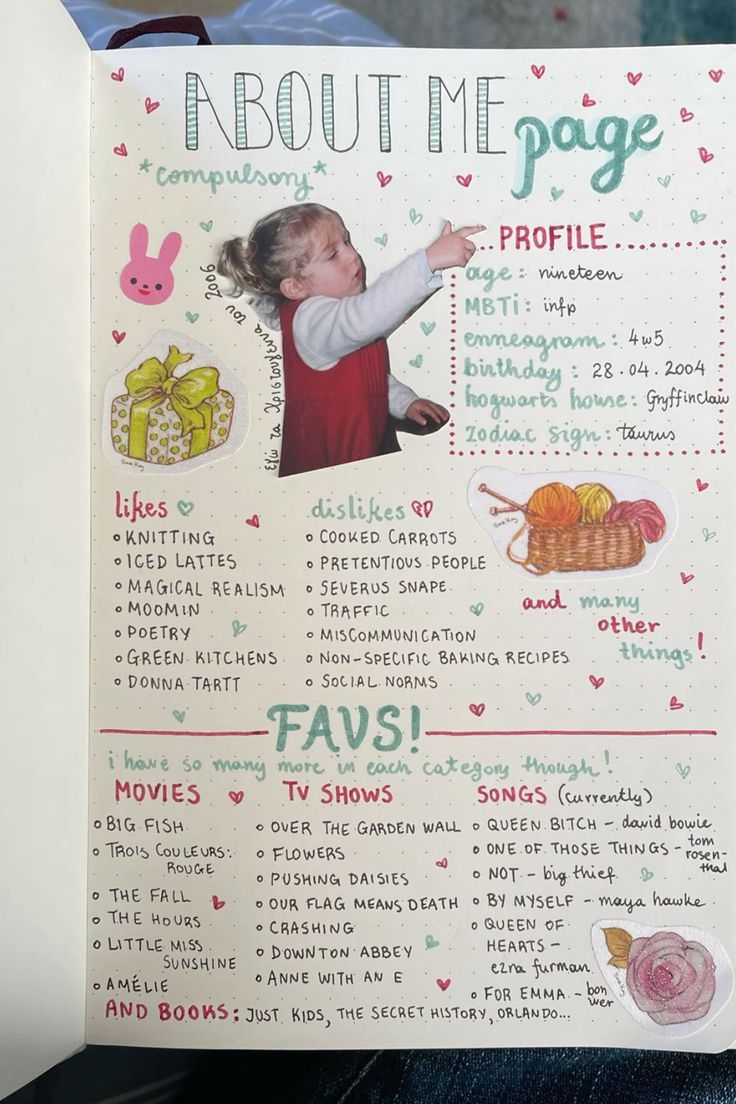 ABOUT ME page
*compulsory*
PROFILE
age: nineteen
MBTi: infp
enneagram: 4w5
birthday: 28.04.2004
hogwarts house: Gryffinclaw
Zodiac sign: taurus
εγώ τα Χριστούγεννα του 2006
likes
KNITTING
ICED LATTES
MAGICAL REALISM
MOOMIN
POETRY
GREEN KITCHENS
DONNA TARTT
dislikes
COOKED CARROTS
PRETENTIOUS PEOPLE
SEVERUS SNAPE
TRAFFIC
MISCOMMUNICATION
NON-SPECIFIC BAKING RECIPES
SOCIAL NORMS
and many
other
things!
FAVS!
i have so many more in each category though!
MOVIES
BIG FISH
TROIS COULEURS:
ROUGE
THE FALL
THE HOURS
LITTLE MISS
SUNSHINE
AMÉLIE
TV SHOWS
OVER THE GARDEN WALL
FLOWERS
PUSHING DAISIES
OUR FLAG MEANS DEATH
CRASHING
DOWNTON ABBEY
ANNE WITH AN E
SONGS (currently)
QUEEN BITCH - david bowie
ONE OF THOSE THINGS - tom
rosen-
thal
NOT - big thief
BY MYSELF - maya hawke
QUEEN OF
HEARTS -
ezra furman
FOR EMMA - bon
iver
AND BOOKS: JUST KIDS, THE SECRET HISTORY, ORLANDO...